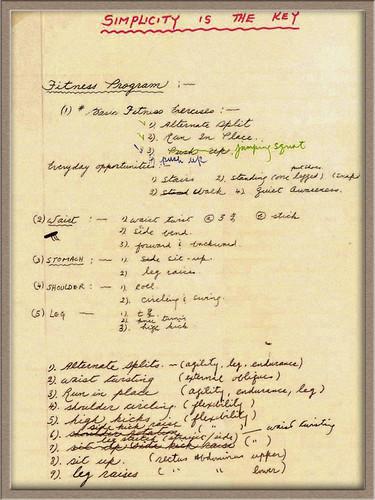 SIMPLICITY IS THE KEY
Fitness Program :-
(1) # Basic Fitness Exercises :-
1). Alternate Split
2). Run In Place.
3) Push up. Jumping Squat
4) push up
Everyday opportunities
1) Stairs 2). standing (one legged)
2) stand Walk 4). Quiet Awareness.
(2) Waist :- 1) waist twist stick
2) side bend.
3). forward & backward.
(3) STOMACH :- 1). side sit-up.
2) leg raises.
(4) SHOULDER :- 1). roll.
2) circling & swing.
(5) LEG - 1).
2).
3). high kick.
1). Alternate splits. - (agility, leg, endurance)
2) waist twisting (external obliques)
3). Run in place (agility, endurance, leg)
4). shoulder circling. (flexibility)
5). high kick (flexibility)
side kick raise ( " " ) waist twisting
6). shoulder rotation
leg stretch (straight/side) ( " )
7). sit up side kick raise
8). sit up. (rectus abdominus upper)
9). leg raises ( " " lower)